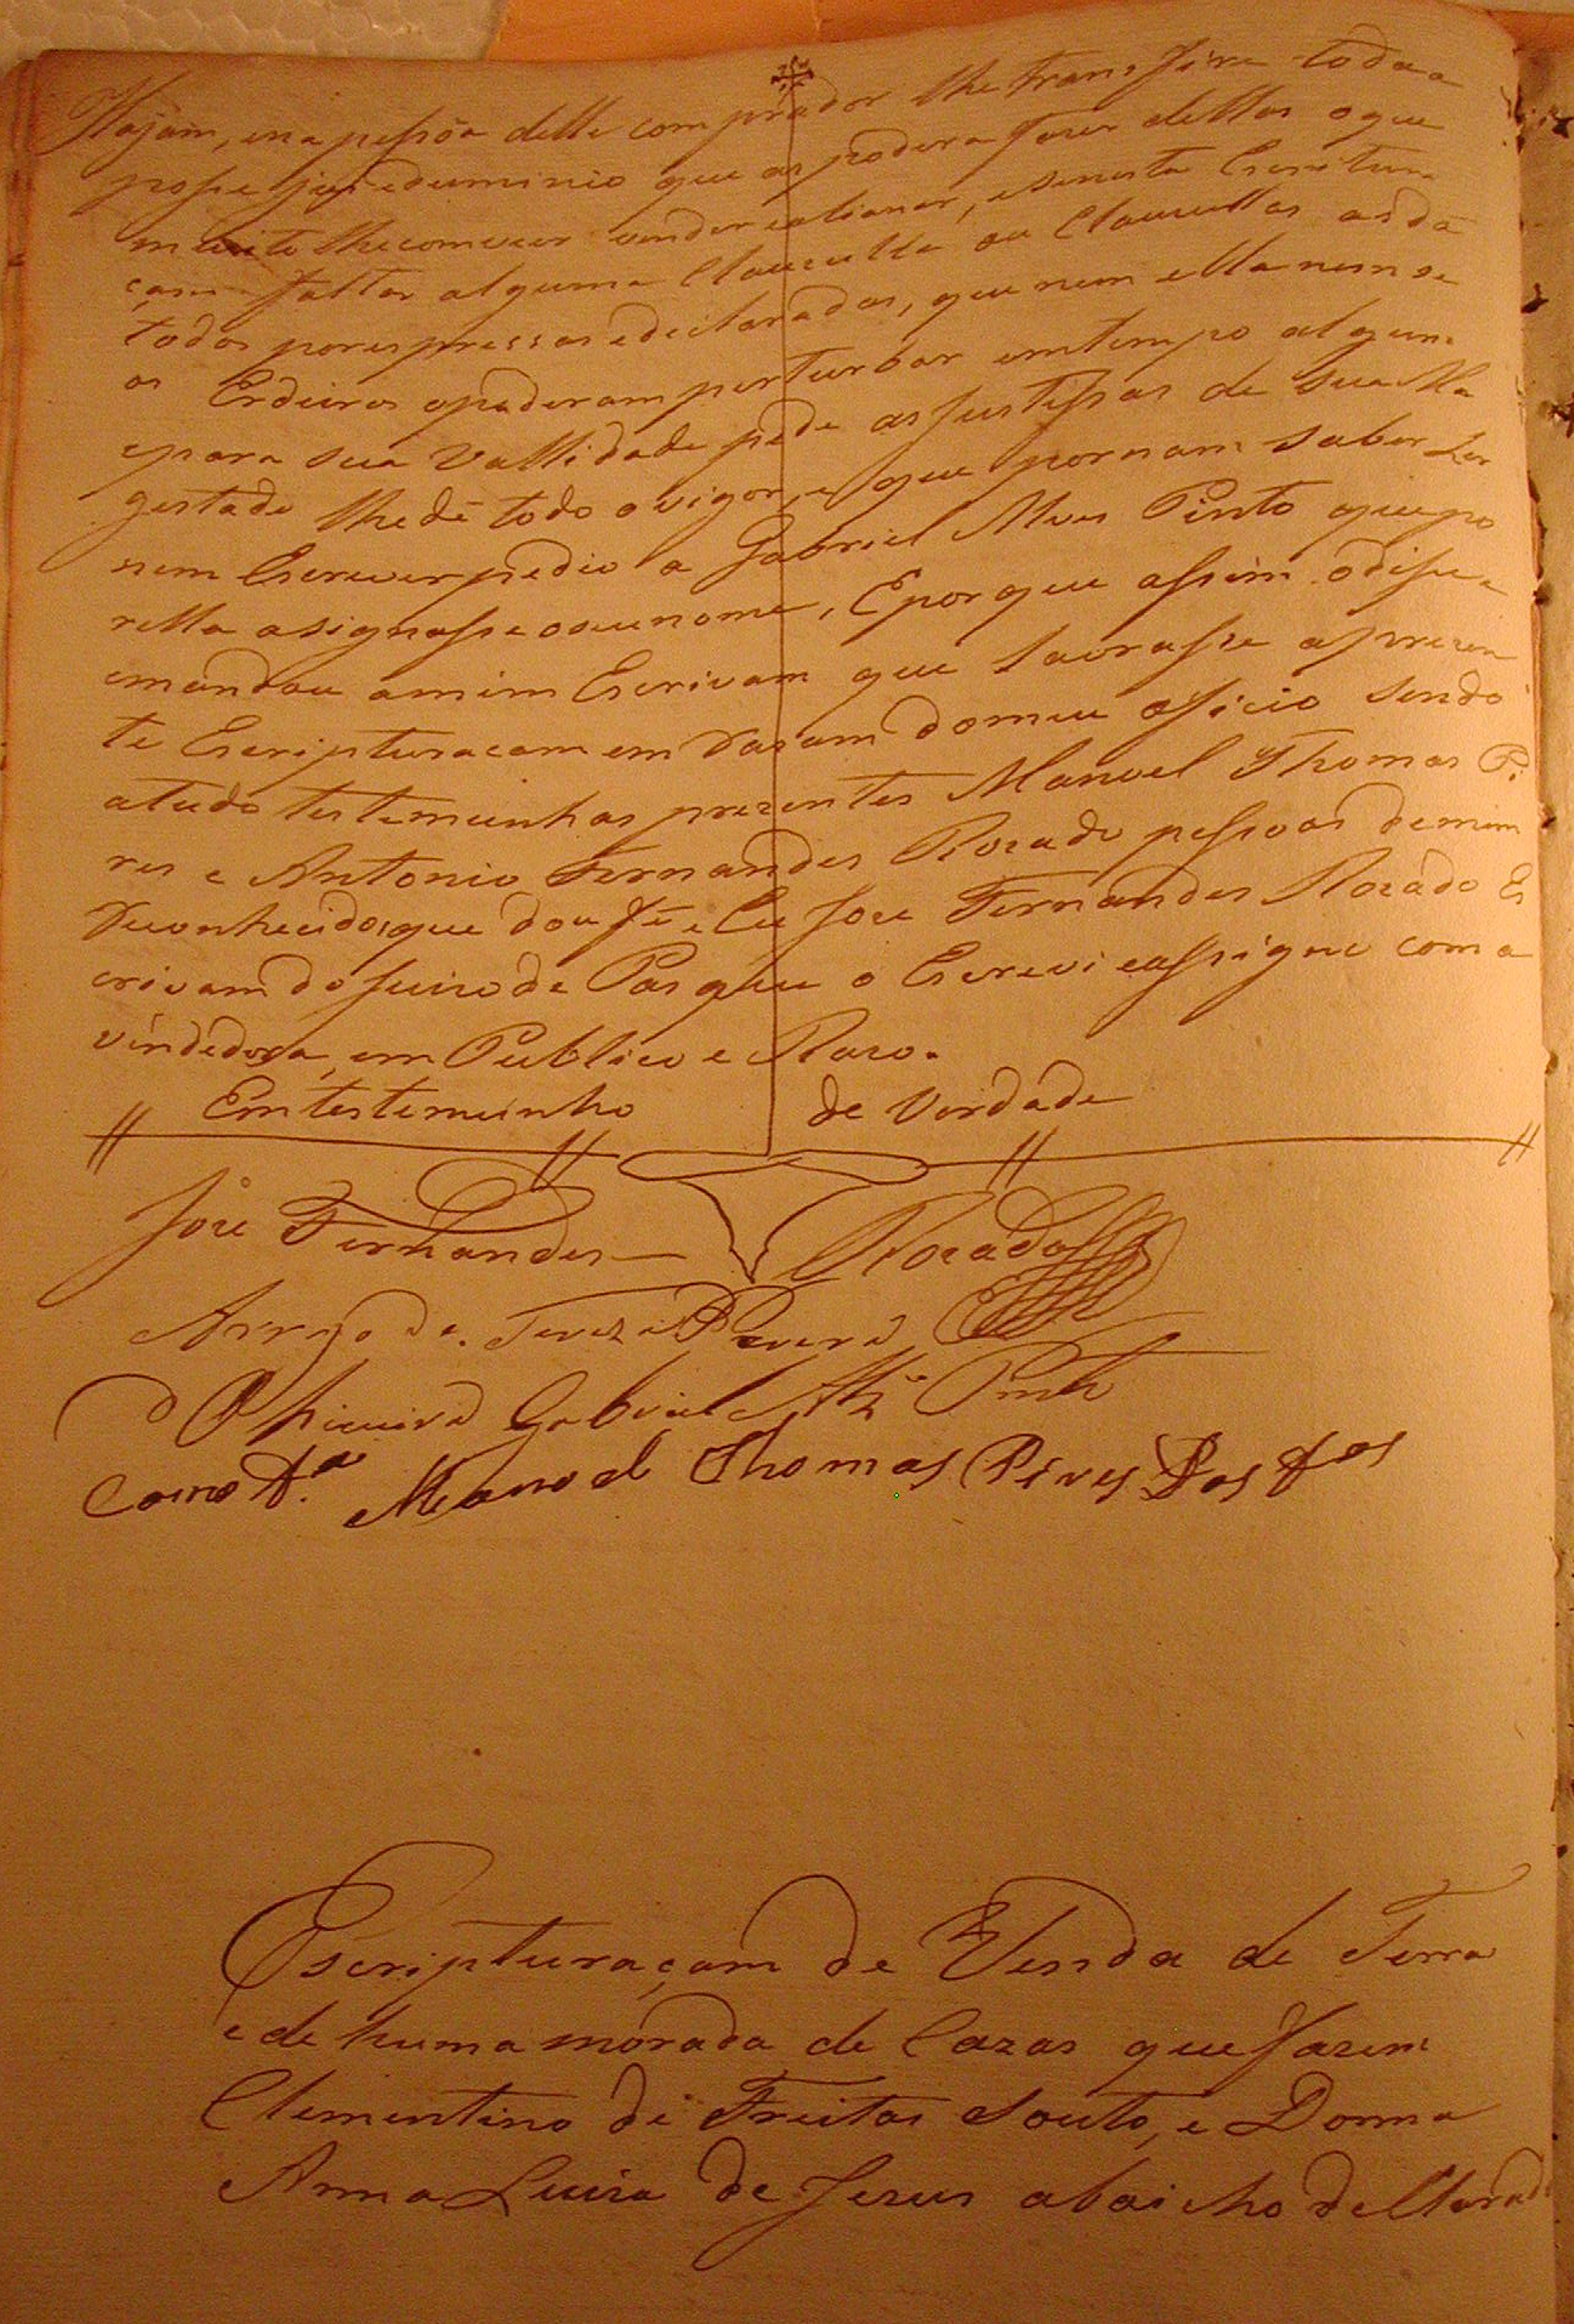 Hajam, ena pessoa delle comprador lhe transfire toda a
posse jus e duminio que as podera fazer dellas o que
milhor lhe comvier vender e alianar, e se nesta Escritura
çam faltar alguma Clauzulla ou Clauzullas as dá
todas por espressas e declaradas, que nem ella nem se
os Erdeiros o poderam perturbar em tempo algum
e para sua Vallidade pede as Justissas de Sua Ma
gestade lhe dê todo o vigor, e que por nam saber Ler
nem Escrever pedio a Gabriel Alves Pinto que po
rella asignasse o seu nome, E por que assim o disse
emandou amim Escrivam que lavrasse aprezen
te Escripturacam em Razam do meu oficio sendo
a tudo testemunhas prezentes Manoel Thomas Pi
res e Antonio Fernandes Rozado pessoas de mim
Reconhecidos que dou fé e Eu Joze Fernandes Rozado Es
crivam do Juizo de Paz que o Escrevi e assigno com a
vendedora, em Publico e Razo.
Em testemunho de Verdade
Joze Fernandes Rozado
Arrogo de Tereza
Gabriel Alz Pinto
Como Ta Manoel Thomas Pires Dos
Escripturaçam de Venda de Terra
e de huma morada de Cazas que fazem
Clementino de Freitas Souto, e Donna
Anna Luiza de Jezus abaicho dellarado